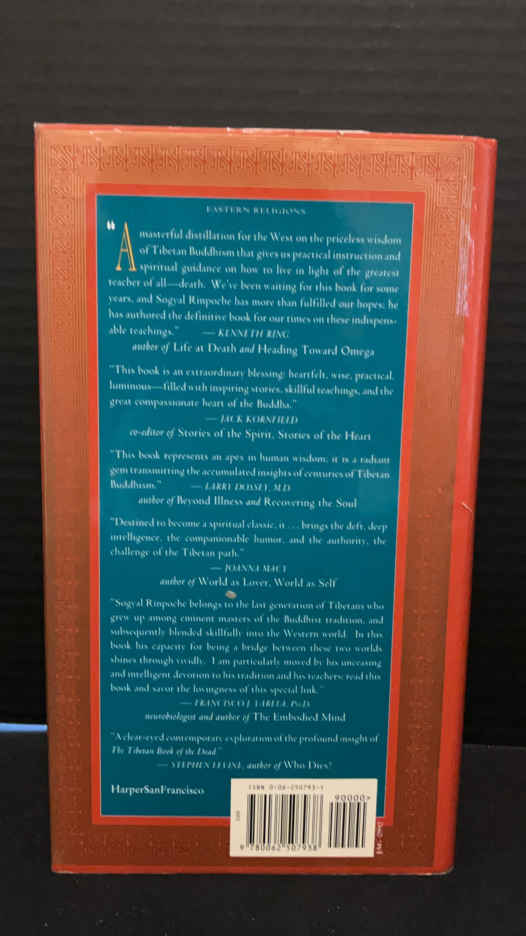 EASTERN RELIGIONS
"A masterful distillation for the West on the priceless wisdom
of Tibetan Buddhism that gives us practical instruction and
spiritual guidance on how to live in light of the greatest
teacher of all—death. We've been waiting for this book for some
years, and Sogyal Rinpoche has more than fulfilled our hopes; he
has authored the definitive book for our times on these indispens-
able teachings." — KENNETH RING
author of Life at Death and Heading Toward Omega
"This book is an extraordinary blessing: heartfelt, wise, practical,
luminous—filled with inspiring stories, skillful teachings, and the
great compassionate heart of the Buddha."
— JACK KORNFIELD
co-editor of Stories of the Spirit, Stories of the Heart
"This book represents an apex in human wisdom; it is a radiant
gem transmitting the accumulated insights of centuries of Tibetan
Buddhism." — LARRY DOSSEY, M.D.
author of Beyond Illness and Recovering the Soul
"Destined to become a spiritual classic, it . . . brings the deft, deep
intelligence, the companionable humor, and the authority, the
challenge of the Tibetan path."
— JOANNA MACY
author of World as Lover, World as Self
"Sogyal Rinpoche belongs to the last generation of Tibetans who
grew up among eminent masters of the Buddhist tradition, and
subsequently blended skillfully into the Western world. In this
book his capacity for being a bridge between these two worlds
shines through vividly. I am particularly moved by his unceasing
and intelligent devotion to his tradition and his teachers; read this
book and savor the lovingness of this special link."
— FRANCISCO J. VARELA, PH.D.
neurobiologist and author of The Embodied Mind
"A clear-eyed contemporary exploration of the profound insight of
The Tibetan Book of the Dead."
— STEPHEN LEVINE, author of Who Dies?
HarperSanFrancisco
ISBN 0-06-250793-1
90000>
9 780062 507938